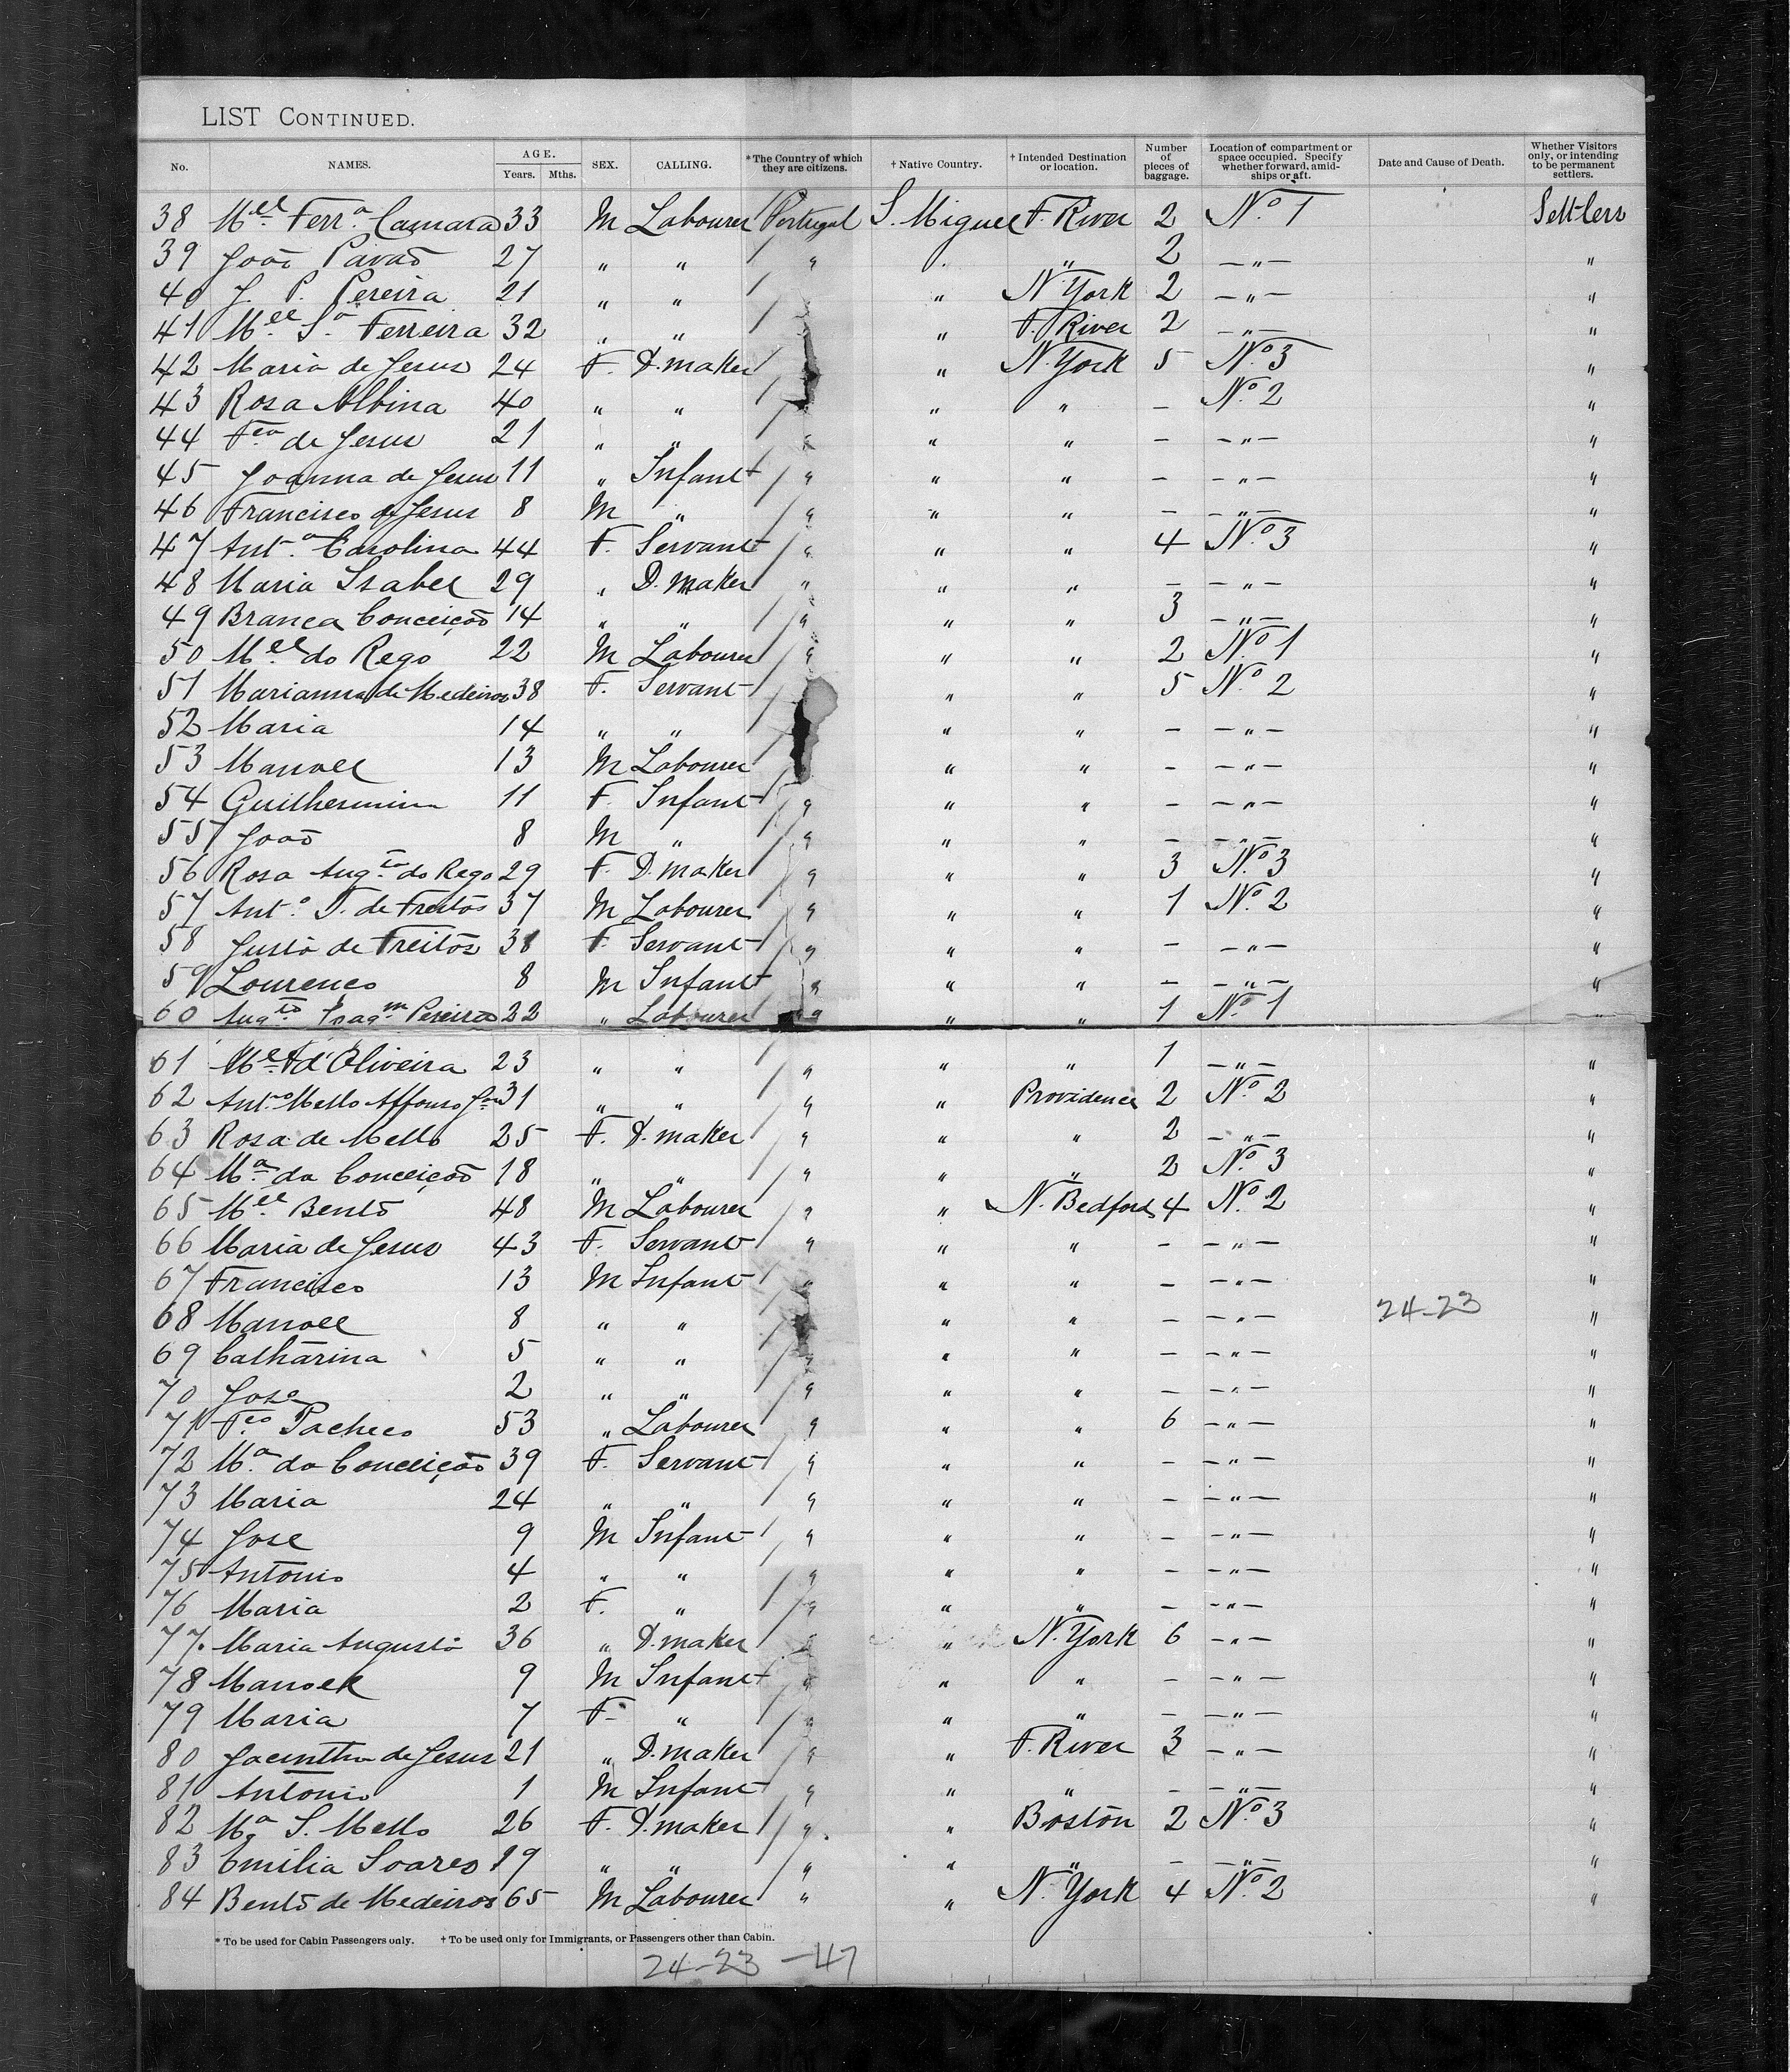 LIST CONTINUED.
No. NAMES. AGE. Years. Mths. SEX. CALLING. *The Country of which they are citizens. † Native Country. † Intended Destination or location. Number of pieces of baggage. Location of compartment or space occupied. Specify whether forward, amidships or aft. Date and Cause of Death. Whether Visitors only, or intending to be permanent settlers.
38 Mel Ferra Camara 33 M Labourer Portugal S. Miguel F. River 2 No 1 Settlers
39 João Pavaõ 27 " " " " 2 — " — "
40 J. P. Pereira 21 " " " N. York 2 — " — "
41 Mel Sa Ferreira 32 " " " F. River 2 — " — "
42 Maria de Jesus 24 F. D. maker " N. York 5 No 3 "
43 Rosa Albina 40 " " " " — No 2 "
44 Fca de Jesus 21 " " " " " — — " — "
45 Joanna de Jesus 11 " Infant " " " — — " — "
46 Francisco de Jesus 8 M " " " " — — " — "
47 Anta Carolina 44 F. Servant " " " 4 No 3 "
48 Maria Isabel 29 " D. maker " " " — — " — "
49 Branca Conceição 14 " " " " " 3 — " — "
50 Mel do Rego 22 M Labourer " " " 2 No 1 "
51 Marianna de Medeiros 38 F. Servant " " 5 No 2 "
52 Maria 14 " " " " — — " — "
53 Manoel 13 M Labourer " " — — " — "
54 Guilhermina 11 F. Infant " " " — — " — "
55 João 8 M " " " " — — " — "
56 Rosa Augta do Rego 29 F. D. maker " " " 3 No 3 "
57 Anto T. de Freitas 37 M Labourer " " " 1 No 2 "
58 Justa de Freitas 38 F. Servant " " " — — " — "
59 Lourenco 8 M Infant " " " — — " — "
60 Augto Joaqm Pereira 22 " Labourer " " " 1 No 1 "
61 Mel d'Oliveira 23 " " " " " 1 — " — "
62 Anto Mello Affonso 31 " " " " Providence 2 No 2 "
63 Rosa de Mello 25 F. D. maker " " " 2 — " — "
64 Ma da Conceição 18 " " " " " 2 No 3 "
65 Mel Bento 48 M Labourer " " N. Bedford 4 No 2 "
66 Maria de Jesus 43 F. Servant " " " — — " — "
67 Francisco 13 M Infant " " " — — " — "
68 Manoel 8 " " " " — — " — 24-23 "
69 Catharina 5 " " " " " — — " — "
70 Jose 2 " " " " " — — " — "
71 Fco Pacheco 53 " Labourer " " " 6 — " — "
72 Ma da Conceição 39 F. Servant " " " — — " — "
73 Maria 24 " " " " " — — " — "
74 Jose 9 M Infant " " " — — " — "
75 Antonio 4 " " " " " — — " — "
76 Maria 2 F. " " " " — — " — "
77. Maria Augusta 36 " D. maker " " N. York 6 — " — "
78 Manoel 9 M Infant " " " — — " — "
79 Maria 7 F " " " " — — " — "
80 Jacintha de Jesus 21 " D. maker " " F. River 3 — " — "
81 Antonio 1 M Infant " " " — — " — "
82 Ma S. Mello 26 F. D. maker " " Boston 2 No 3 "
83 Emilia Soares 19 " " " " " — — " — "
84 Bento de Medeiros 65 M Labourer " " N. York 4 No 2 "
* To be used for Cabin Passengers only. † To be used only for Immigrants, or Passengers other than Cabin.
24-23 -47